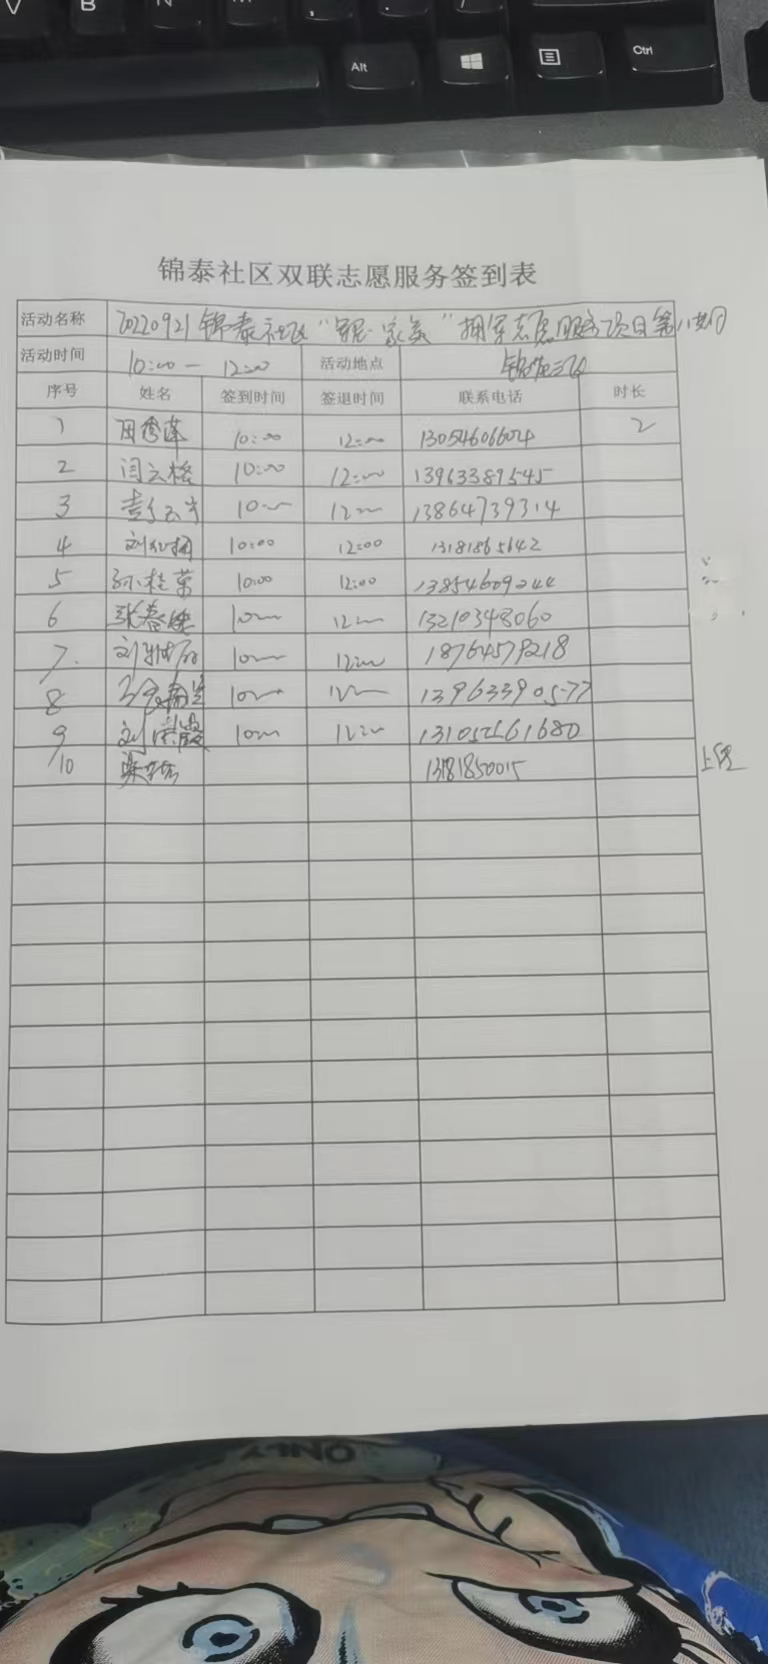 V B N M
Alt Ctrl
锦泰社区双联志愿服务签到表
活动名称 20220921锦泰社区 " 家美 " 拥军志愿服务项目第八期
活动时间 10:00 — 12:00 活动地点 锦泰社区
序号 姓名 签到时间 签退时间 联系电话 时长
1 周秀莲 10:00 12:00 13054606604 2
2 闫云格 10:00 12:00 13963389545
3 10:00 12:00 13864739314
4 10:00 12:00 13181865642
5 孙桂荣 10:00 12:00 13854609244
6 张春 10:00 12:00 13210348060
7. 刘 10:00 12:00 18764579218
8 10:00 12:00 13963390577
9 刘荣霞 10:00 12:00
10 13181850015
ONLY